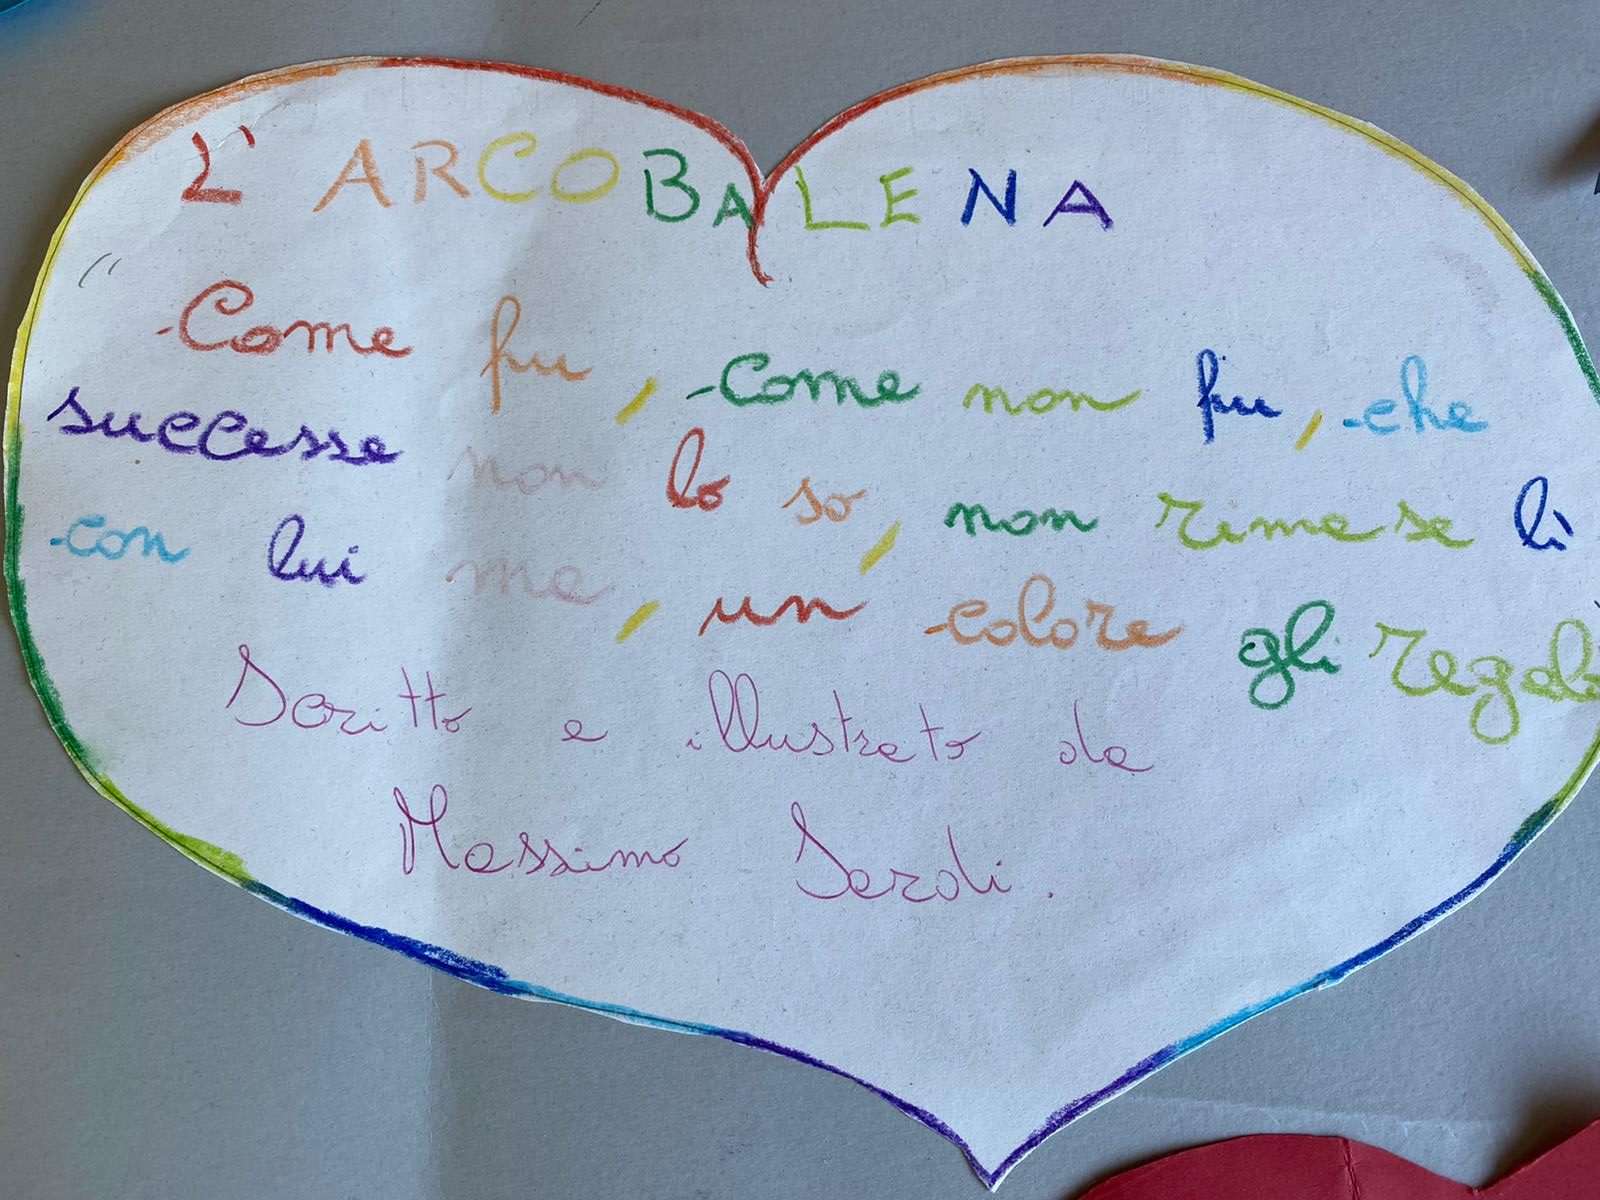 L'ARCOBALENA
"Come fu, come non fu, che
successe non lo so, non rimase lì
con lui ma, un colore gli regalò
Scritto e illustrato da
Massimo Sardi.